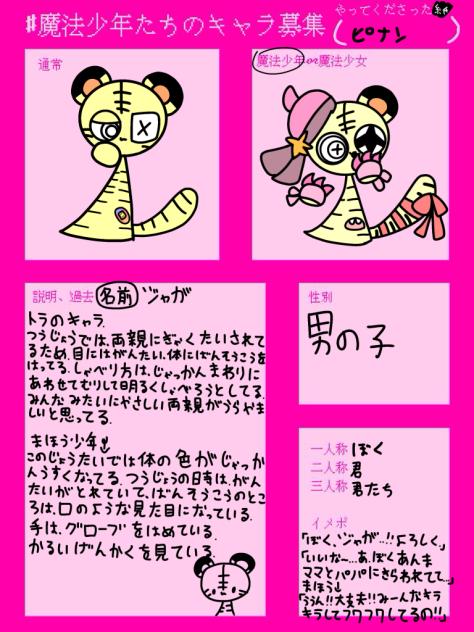 #魔法少年たちのキャラ募集
やってくださった
ピナン
通常
魔法少年or魔法少女
説明、過去 名前 ジャガ
トラのキャラ.
つうじょうでは、両親にぎゃくたいされて
るため、目にはがんたい、体にばんそうこうを
はってる。しゃべり方は、じゃっかんまわりに
あわせてむりして明るくしゃべろうとしてる。
みんなみたいにやさしい両親がうらやま
しいと思ってる。
まほう少年↓
このじょうたいでは体の色がじゃっか
んうすくなってる。つうじょうの日時は、がん
たいがとれていて、ばんそうこうのとこ
ろは、口のような見た目になっている。
手は、グローブをはめている。
かるいげんかくを見ている。
性別
男の子
一人称 ぼく
二人称 君
三人称 君たち
イメボ
「ぼく、ジャガ...!!よろしく」
「いいなー...あ、ぼくあんま
ママとパパにきらわれてて...」
まほう↓
「ううん!!大丈夫!!みーんなキラ
キラしてフワフワしてるの!!」